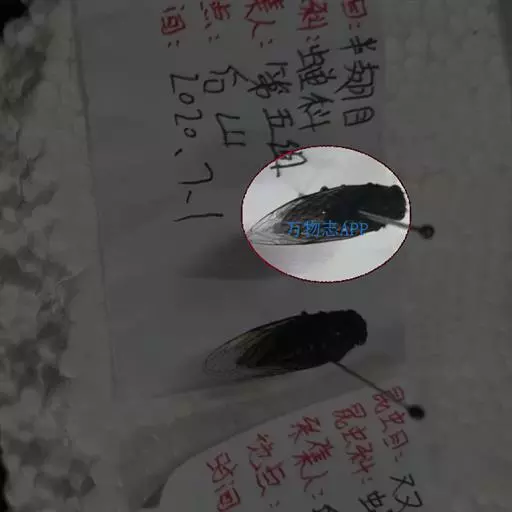 目:半翅目
科:蝉科
集人:第五组
点:台山
间:2020、7-1
万物志APP
昆虫目:双
昆虫科:
采集人:
地点:
时间